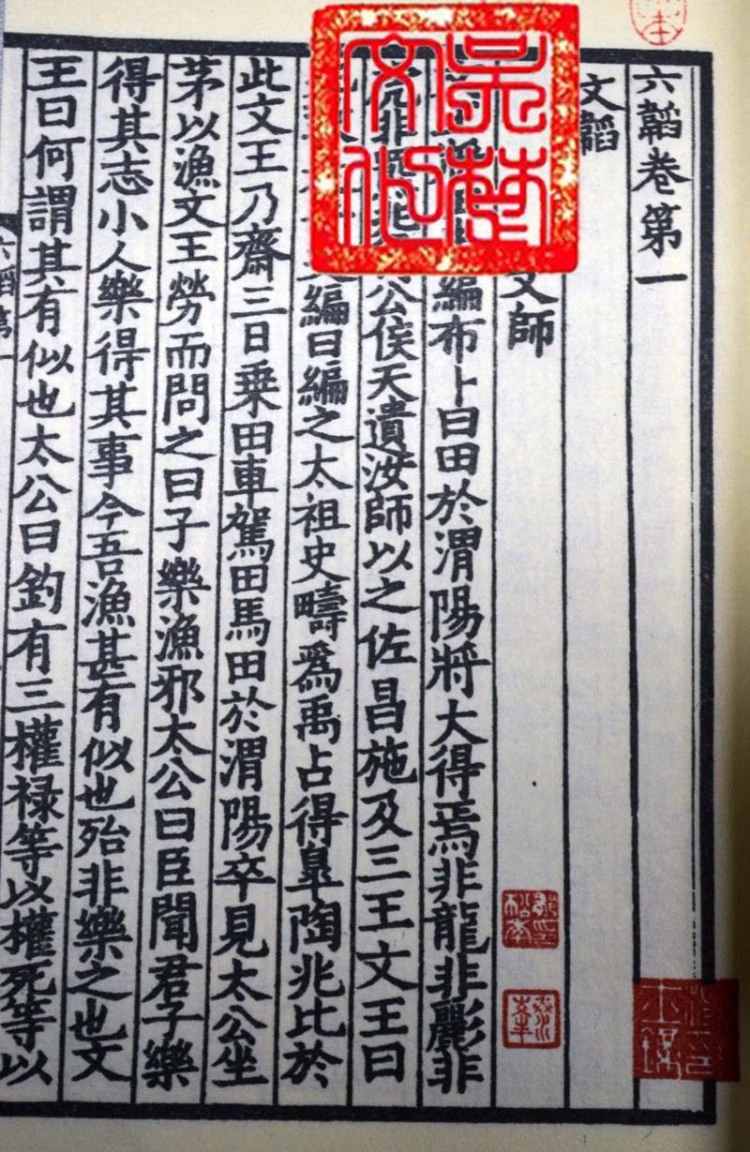 六韜卷第一
文韜
文師
編布卜曰田於渭陽將大得焉非龍非彲非
公侯天遺汝師以之佐昌施及三王文王曰
編曰編之太祖史疇爲禹占得皐陶兆比於
此文王乃齋三日乗田車駕田馬田於渭陽卒見太公坐
茅以漁文王勞而問之曰子樂漁邪太公曰臣聞君子樂
得其志小人樂得其事今吾漁甚有似也殆非樂之也文
王曰何謂其有似也太公曰釣有三權禄等以權死等以
六韜第一
吴楚文化